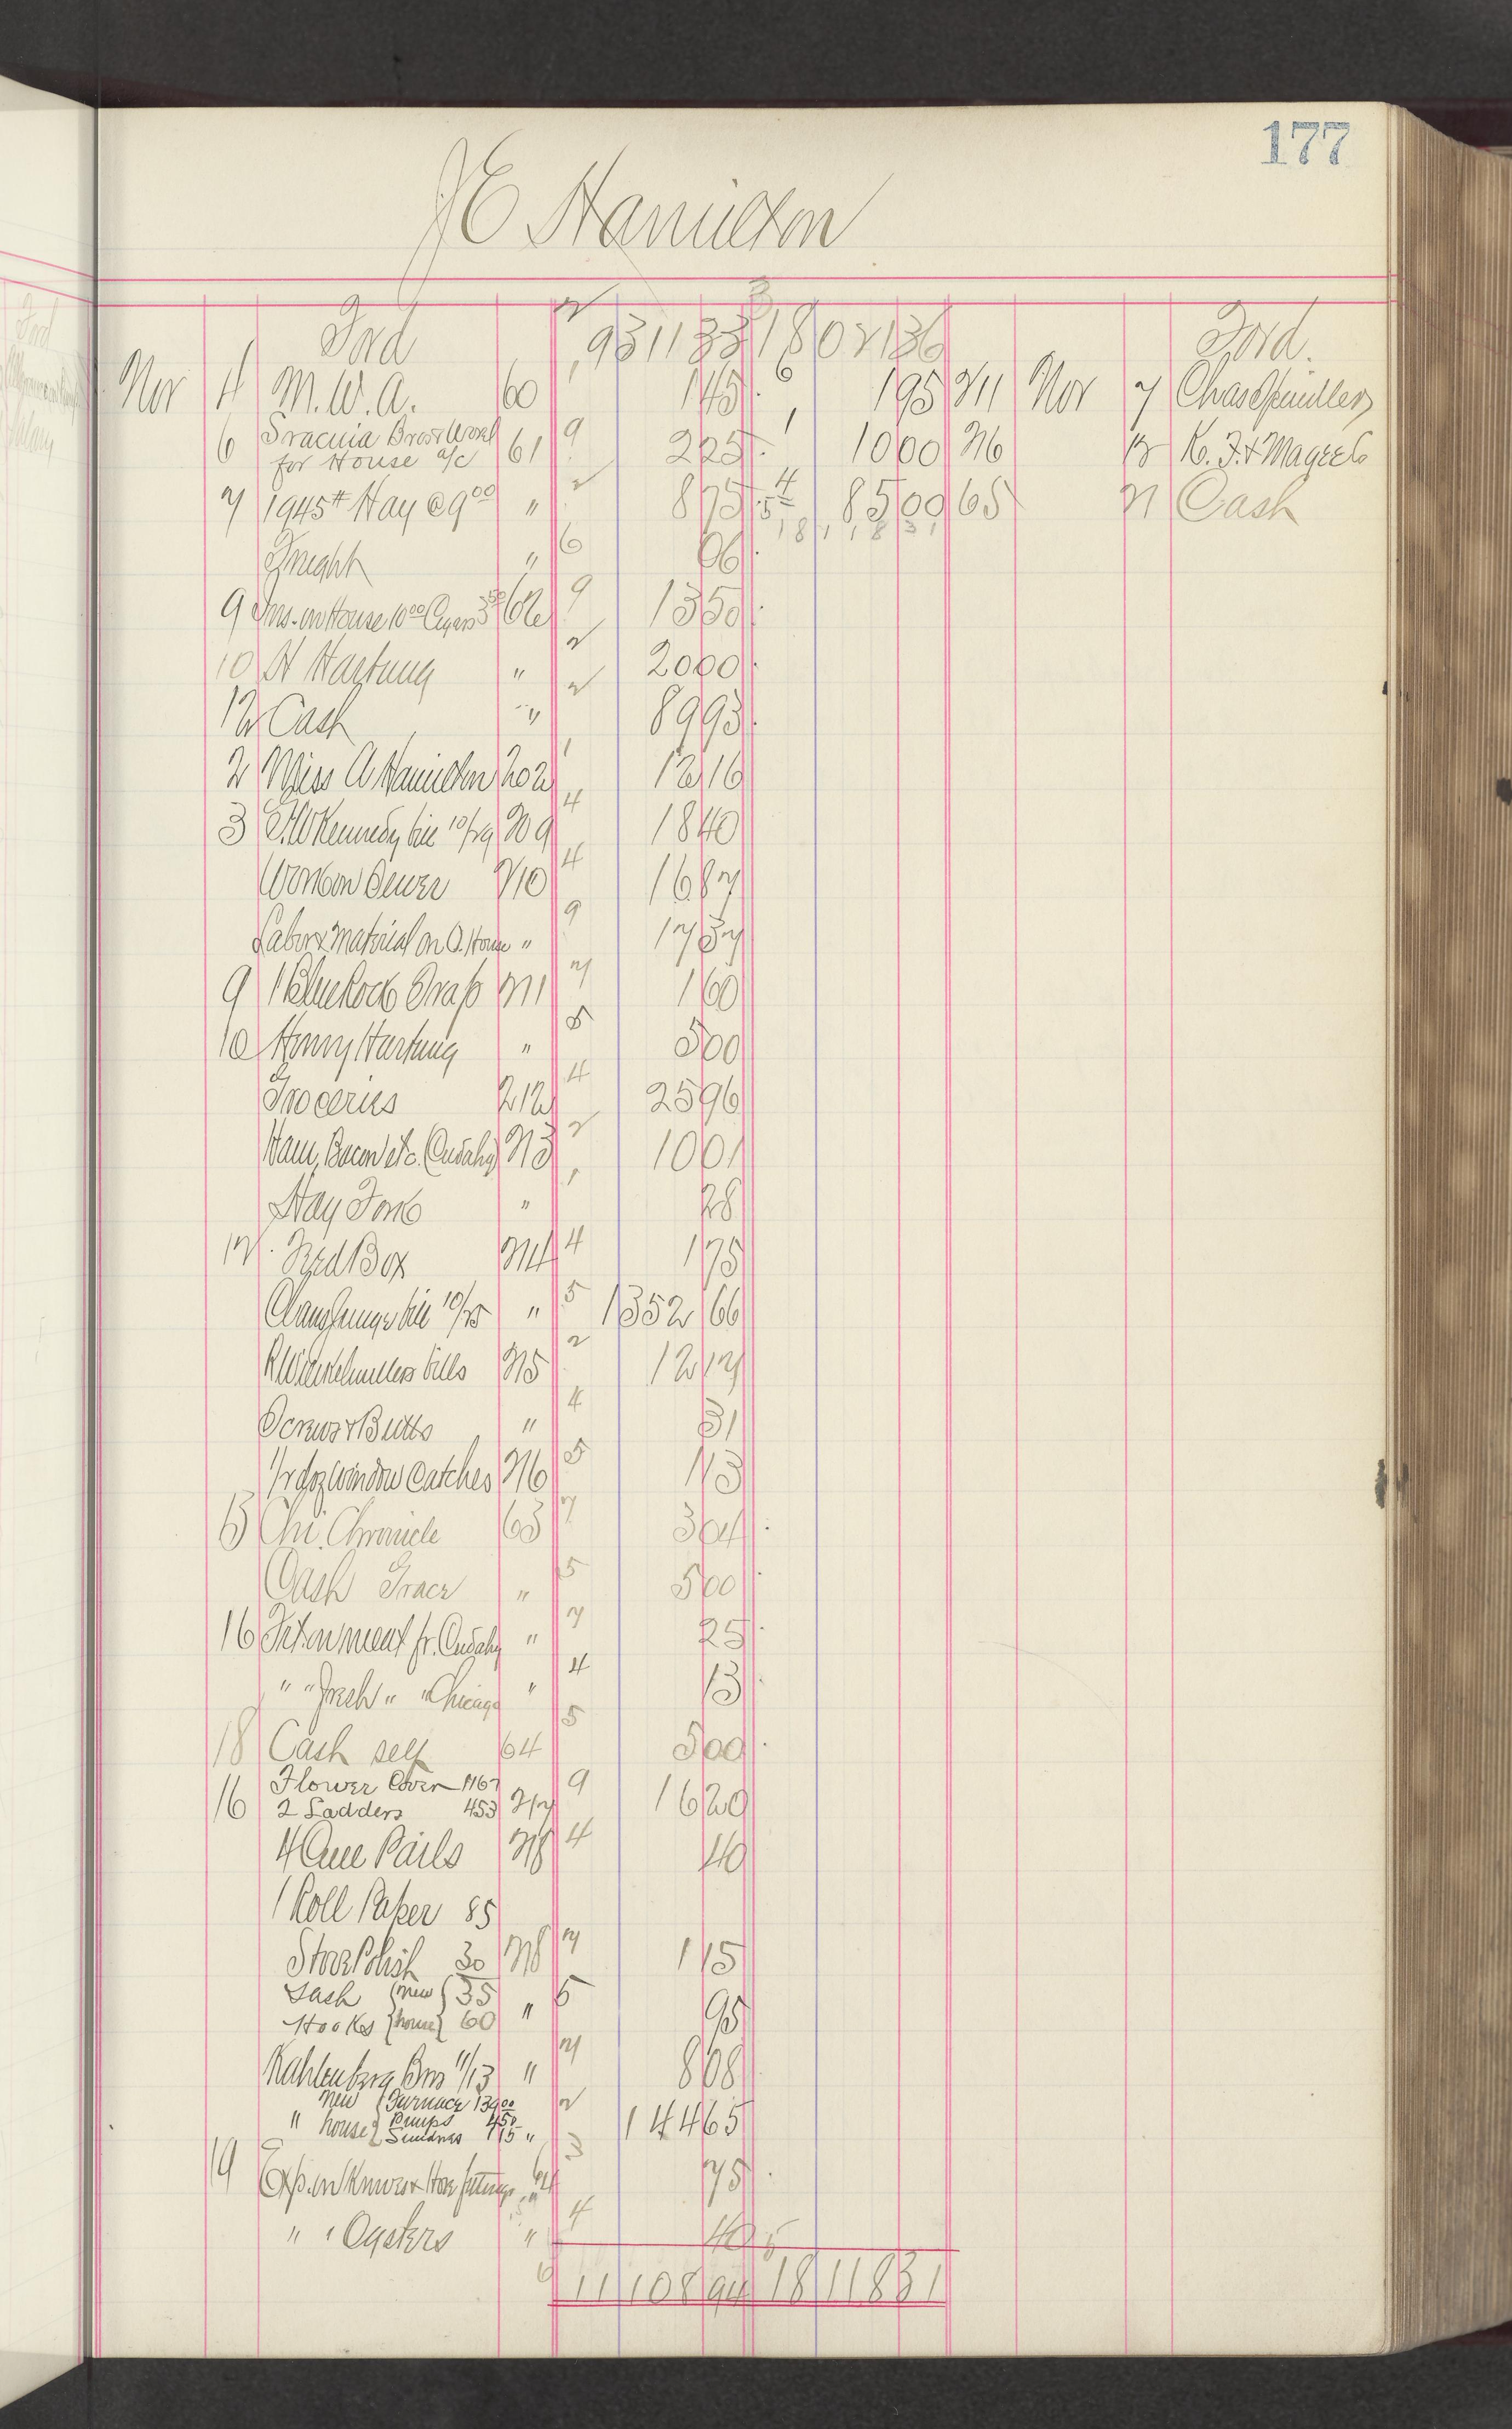 177
J E Hamilton
Ford 9311 33 18021 36 Ford.
Nov 4 M.W.A. 60 1 1 45 6 1 95 211 Nov 7 Chas Spindler
6 Bros Work
for House a/c 61 9 2 25 10 00 216 13 K. F. & Mayer Co
7 1945# Hay @ 9 00 " 2 8 75 4 85 00 65 21 Cash
Freight " 6 66
9 Ins. on House 10 00 3 50 62 9 13 50
10 H Hartung " 2 20 00
12 Cash " 2 89 93
2 Miss A Hamilton 202 1 12 16
3 Kennedy bill 10/29 209 4 18 40
Work on Sewer 210 4 16 87
Labor & Material on O. House " 9 17 37
9 1 211 7 1 60
10 Henry Hartung " 5 5 00
Groceries 212 4 25 96
Ham, Bacon etc. (Cudahy) 213 2 10 01
Hay Fork " 1 28
12 Feed Box 214 4 1 75
bill 10/25 " 5 1352 66
bills 215 2 12 17
Screws & Butts " 4 31
1/2 doz Window Catches 216 5 1 13
13 Chi. Chronicle 63 7 3 04
Cash Grace " 5 5 00
16 Tel. on meat fr. Cudahy " 7 25
" " Fresh " " Chicago " 4 13
18 Cash self 64 5 5 00
16 Flower Cover 1167
2 Ladders 453 217 9 16 20
4 Pails 218 4 40
1 Roll Paper 85
Stove Polish 30 218 7 1 15
Sash {new} 35
Hooks {house} 60 " 5 95
Kahlenberg Bros 11/13 " 7 8 08
new {Furnace 139 00
" house {Pumps 4 50
Sundries 1 15 " 2 144 65
19 Exp. on 64 3 75
" " Oysters " 4 40
11108 94 18118 31